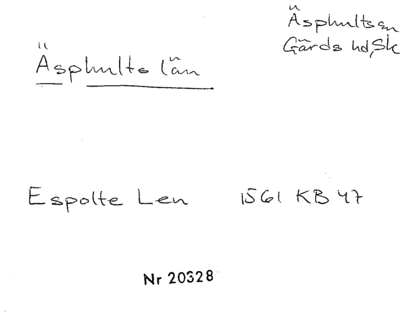 Äsphults sn
Gärds hd, Sk
Äsphults län
Espolte Len 1561 KB 47
Nr 20328